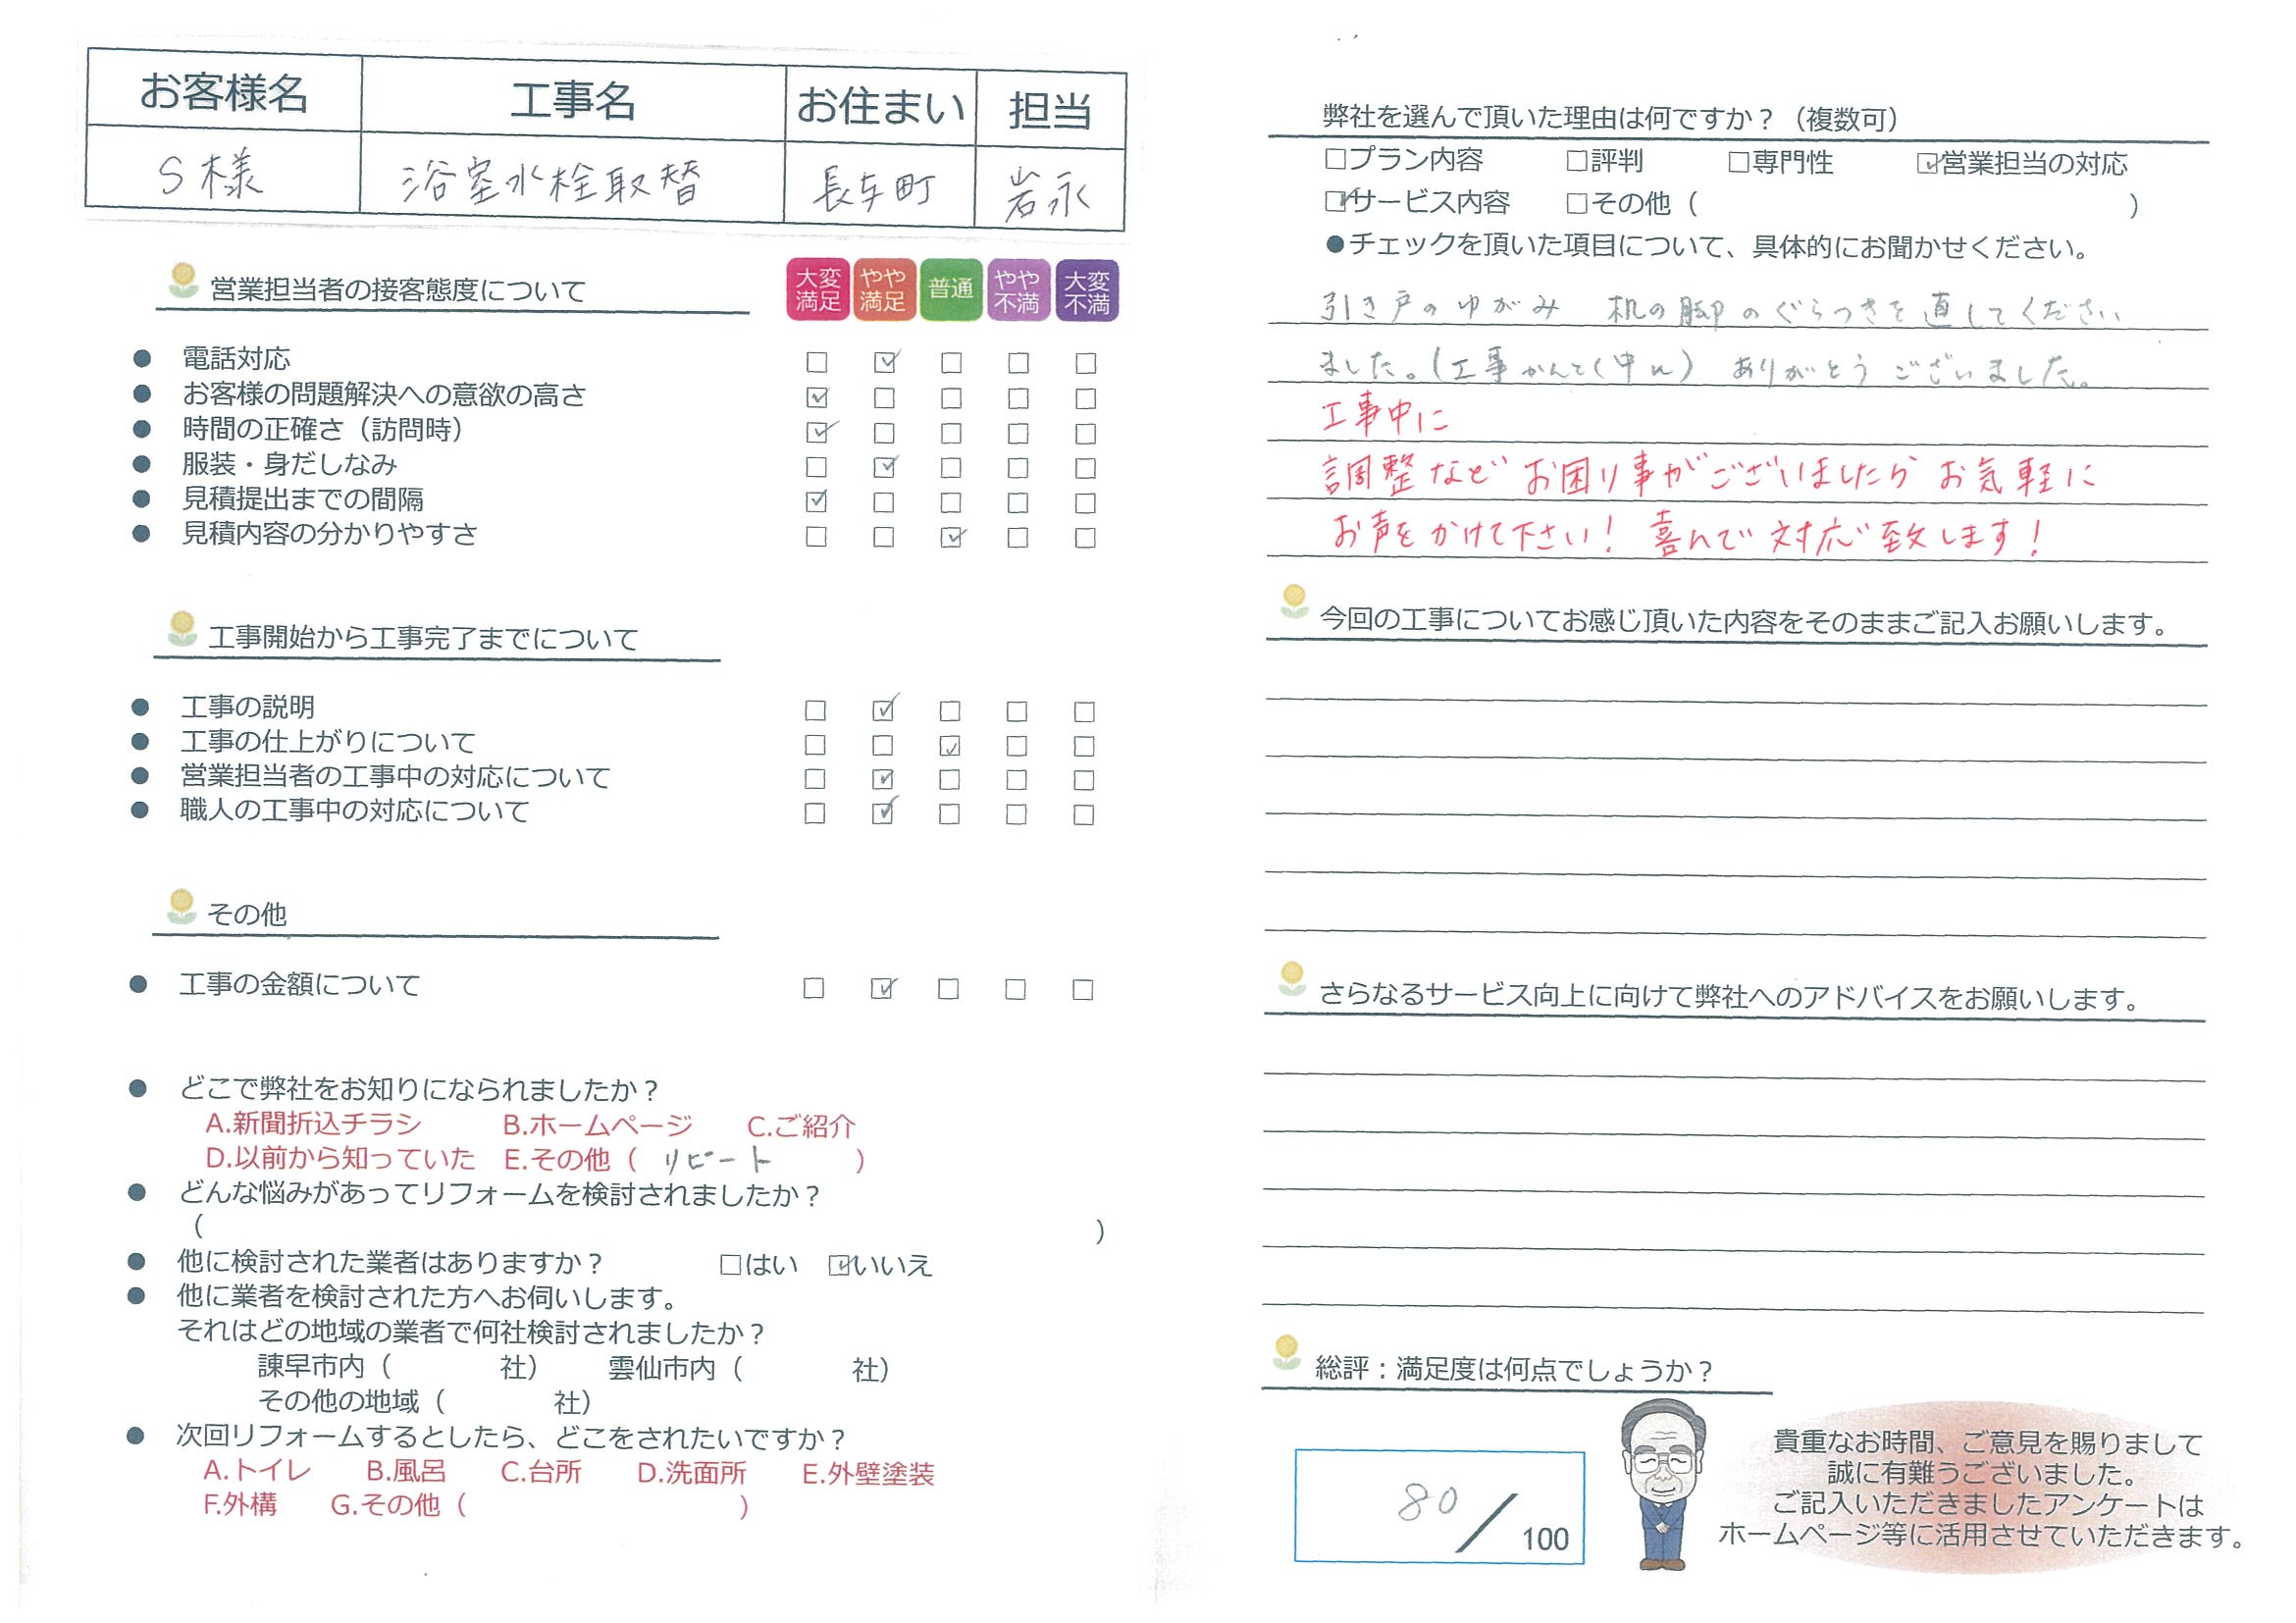 お客様名 工事名 お住まい 担当
S様 浴室水栓取替 長与町 岩永
営業担当者の接客態度について
大変満足 やや満足 普通 やや不満 大変不満
● 電話対応 □ ☑ □ □ □
● お客様の問題解決への意欲の高さ ☑ □ □ □ □
● 時間の正確さ（訪問時） ☑ □ □ □ □
● 服装・身だしなみ □ ☑ □ □ □
● 見積提出までの間隔 ☑ □ □ □ □
● 見積内容の分かりやすさ □ □ ☑ □ □
工事開始から工事完了までについて
● 工事の説明 □ ☑ □ □ □
● 工事の仕上がりについて □ □ ☑ □ □
● 営業担当者の工事中の対応について □ ☑ □ □ □
● 職人の工事中の対応について □ ☑ □ □ □
その他
● 工事の金額について □ ☑ □ □ □
● どこで弊社をお知りになられましたか？
A.新聞折込チラシ B.ホームページ C.ご紹介
D.以前から知っていた E.その他（ リピート ）
● どんな悩みがあってリフォームを検討されましたか？
（ ）
● 他に検討された業者はありますか？ □はい ☑いいえ
● 他に業者を検討された方へお伺いします。
それはどの地域の業者で何社検討されましたか？
諫早市内（ 社） 雲仙市内（ 社）
その他の地域（ 社）
● 次回リフォームするとしたら、どこをされたいですか？
A.トイレ B.風呂 C.台所 D.洗面所 E.外壁塗装
F.外構 G.その他（ ）
弊社を選んで頂いた理由は何ですか？（複数可）
□プラン内容 □評判 □専門性 ☑営業担当の対応
☑サービス内容 □その他（ ）
●チェックを頂いた項目について、具体的にお聞かせください。
引き戸のゆがみ 机の脚のぐらつきを直してください
ました。（工事かんとく ） ありがとうございました。
工事中に
調整などお困り事がございましたら お気軽に
お声をかけて下さい！ 喜んで対応致します！
今回の工事についてお感じ頂いた内容をそのままご記入お願いします。
さらなるサービス向上に向けて弊社へのアドバイスをお願いします。
総評：満足度は何点でしょうか？
80／100
貴重なお時間、ご意見を賜りまして
誠に有難うございました。
ご記入いただきましたアンケートは
ホームページ等に活用させていただきます。